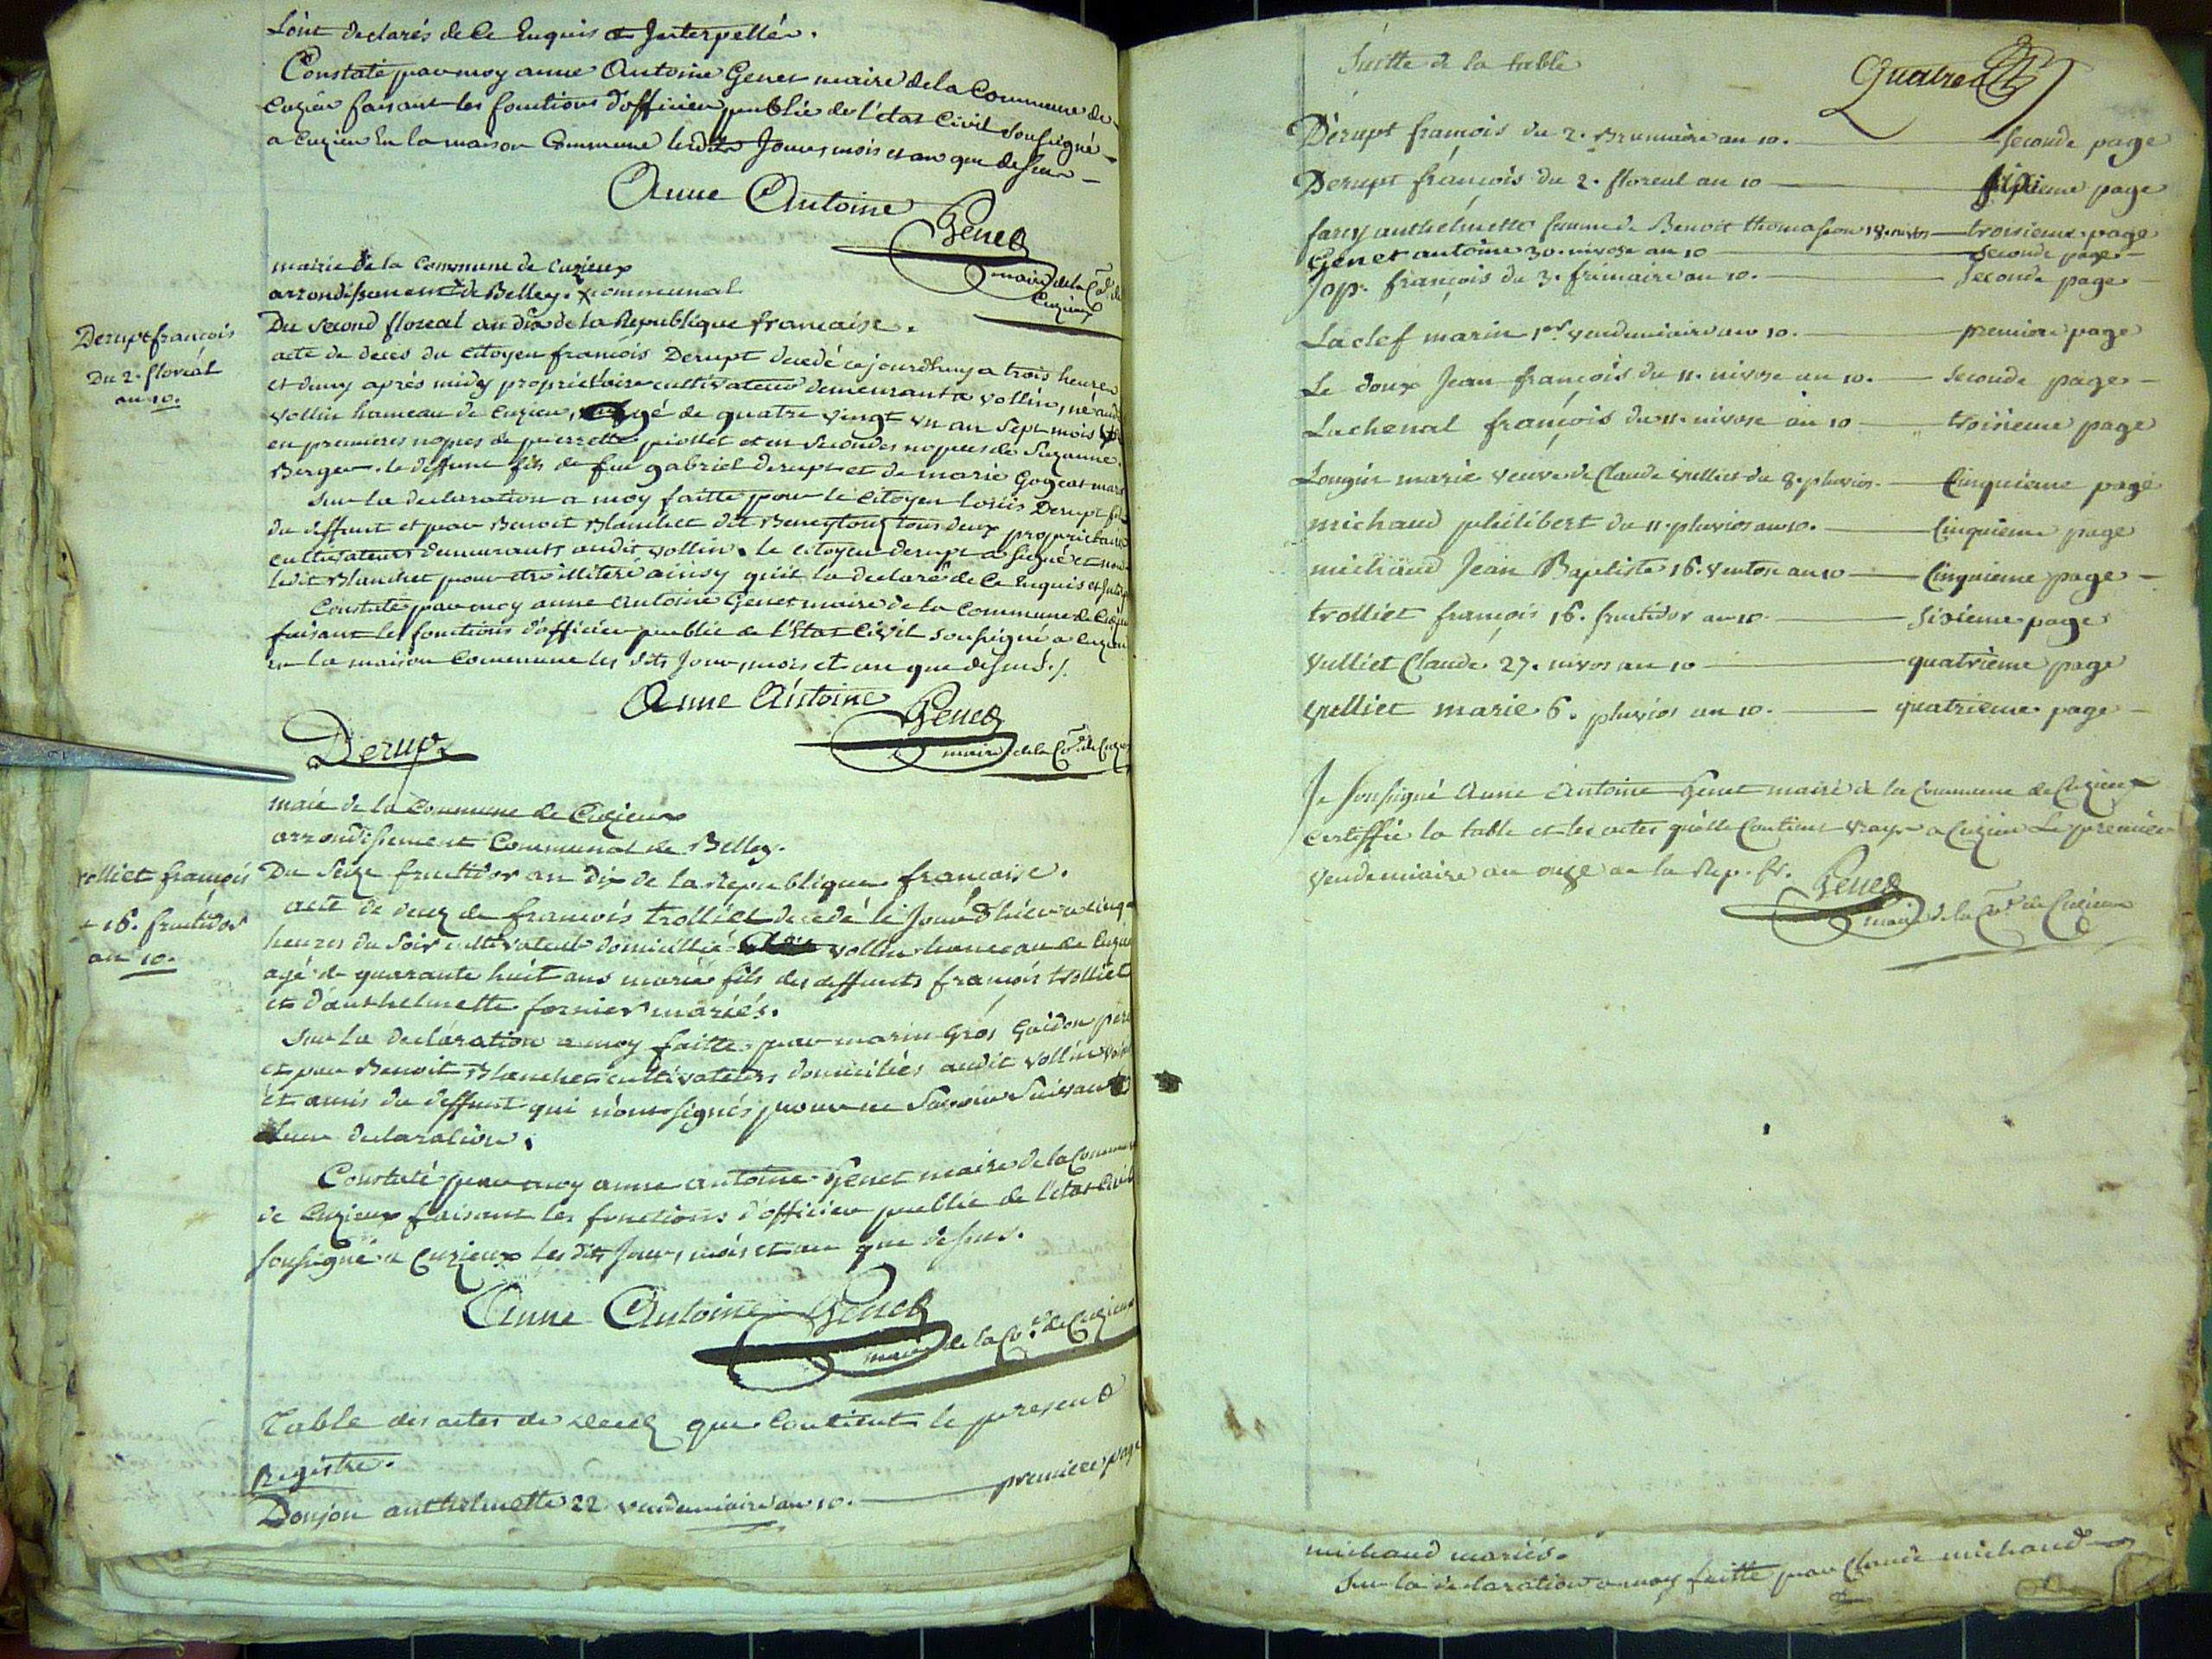 l'ont declarés de ce Enquis et Interpellés.
Constaté par moy anne Antoine Genet maire de la Commune de
Cuzieu faisant les fonctions d'officier public de l'état Civil soussigné
a Cuzieu En la maison Commune lesdits Jour, mois et an que dessus
Anne Antoine
Genet
maire de la Cne de
Cuzieux
mairie de la Commune de Cuzieux
arrondissement de Belley. communal
Derupt françois
Du 2. floréal
an 10.
Du second floreal an dix de la Republique francaise.
acte de deces du citoyen françois Derupt decedé cejourdhuy a trois heures
et demy aprés midy propriettaire cultivateur demeurant a vollin, né audit
vollin hameau de Cuzieu, agé de quatre vingt un an sept mois
en premieres nopces de pierrette piollet et en secondes nopces de Suzanne
Berger. le deffunt fils de feu gabriel derupt et de marie Gogeat mariés
Sur la declaration a moy faitte par le citoyen louis Derupt fils
du deffunt et par Benoit Blanchet dit Beneytoux tous deux proprietaires
cultivateurs demeurants audit vollin. le citoyen derupt a signé et non
ledit Blanchet pour etre illiteré ainsy qu'il la declaré de ce Enquis et
Constaté par moy anne Antoine Genet maire de la Commune de Cuzieu
faisant les fonctions d'officier public de l'Etat Civil soussigné a Cuzieu
en la maison Commune les dits Jour, mois et an que dessus ./.
Anne Antoine
Genet
maire de la Cne de Cuzieu
Derupt
maiè de la Commune de Cuzieux
arrondissement Communal de Belley.
rolliet françois
16. fructidor
an 10.
Du Seize fructidor an dix de la Republique francaise.
acte de deces de francois trolliet decedé le Jour d'hier a cinq
heures du Soir cultivateur domicillié vollin hameau de Cuzieu
agé de quarante huit ans marié fils des deffunts françois trolliet
et d'anthelmette fornier mariés.
Sur la declaration a moy faitte par marin Gros Gaidon pere
et par Benoit Blanchet cultivateurs domiciliés audit vollin voisins
et amis du deffunt qui n'ont signés pour ne Savoir Suivant
leur declaration.
Constaté par moy anne antoine Genet maire de la Commune
de Cuzieux faisant les fonctions d'officier public de l'etat Civil
soussigné a Cuzieux les dits Jour, mois et an que dessus.
Anne Antoine Genet
maire de la Cne de Cuzieux
Table des actes de deces que Contient le present
Registre.
Donjon anthelmette 22 vendemiaire an 10. premiere page
Suitte de la table
Quatre
Dérupt françois du 2. Brumaire an 10. seconde page
Derupt françois du 2. floreal an 10 sixieme page
farcy anthelmette femme de Benoit thomasson 18. nivos troisieme page
Genet antoine 30. nivose an 10 seconde page
Jop. françois du 3. frimaire an 10. Seconde page
Laclef marin 1er vendemiaire an 10. premiere page
Le doux Jean françois du 11. nivose an 10. Seconde page
Lachenal françois du 11. nivose an 10 troisieme page
Longin marie veuve de Claude vulliet du 8. pluvios. Cinquieme page
michaud philibert du 11. pluvios an 10. Cinquieme page
michaud Jean Baptiste 16. ventose an 10 Cinquieme page
trolliet françois 16. fructidor an 10. Sixieme page
vulliet Claude 27. nivos an 10 quatrième page
vulliet marie 6. pluvios an 10. quatrieme page
Je soussigné Anne Antoine Genet maire de la Commune de Cuzieux
certiffie la table et les actes qu'elle Contient vrays a Cuzieu Le premier
vendemiaire an onze de la Rep. fr.
Genet
maire de la Cne de Cuzieux
michaud mariés.
Sur la declaration a moy faitte par Claude michaud